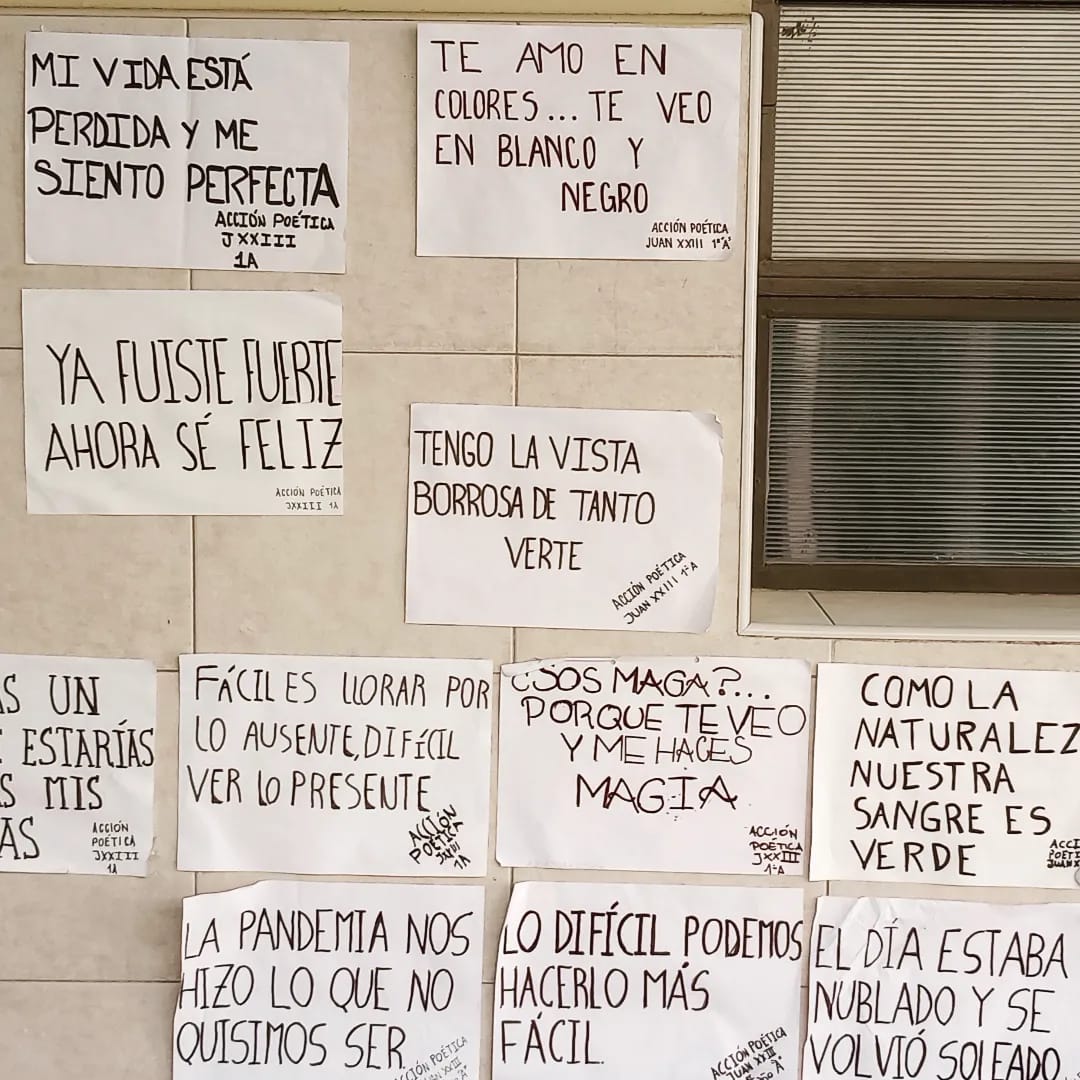 MI VIDA ESTÁ
PERDIDA Y ME
SIENTO PERFECTA
ACCIÓN POÉTICA
JXXIII
1A
TE AMO EN
COLORES... TE VEO
EN BLANCO Y
NEGRO
ACCIÓN POÉTICA
JUAN XXIII 1º"A"
YA FUISTE FUERTE
AHORA SÉ FELIZ
ACCIÓN POÉTICA
JXXIII 1A
TENGO LA VISTA
BORROSA DE TANTO
VERTE
ACCIÓN POÉTICA
JUAN XXIII 1ºA
UN
ESTARÍAS
MIS
ACCIÓN
POÉTICA
JXXIII
1A
FÁCIL ES LLORAR POR
LO AUSENTE, DIFÍCIL
VER LO PRESENTE
ACCIÓN
POÉTICA
JXXIII
1A
¿SOS MAGA?...
PORQUE TE VEO
Y ME HACES
MAGIA
ACCIÓN
POÉTICA
JXXIII
1ºA
COMO LA
NATURALEZ
NUESTRA
SANGRE ES
VERDE
ACCI
POÉTI
JUAN X
LA PANDEMIA NOS
HIZO LO QUE NO
QUISIMOS SER.
CCIÓN POÉTICA
JUAN XXIII
LO DIFÍCIL PODEMOS
HACERLO MÁS
FÁCIL.
ACCIÓN POÉTICA
JUAN XXIII
EL DÍA ESTABA
NUBLADO Y SE
VOLVIÓ SOLEADO